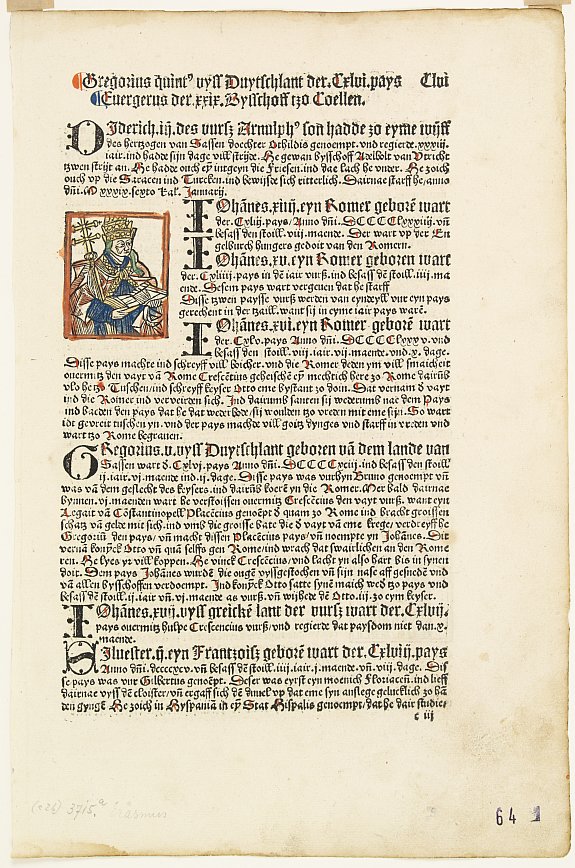 Gregorius quintꝰ vyss Duytschlant der. Cxlvi. pays Clvi
Euergerus der. xxix. Bysschoff tzo Coellen.
Diderich. iij. des vursz Arnulphꝰ son hadde zo eyme wijff
des hertzogen van Sassen dochter Othildis genoempt. vnd regierde. xxxiij.
iair. ind hadde sijn dage vill strijde. He gewan bysschoff Adelbolt van Vtricht
tzwen strijt an. He hadde ouch eȳ intgeyn die Friesen. ind dae lach he vnder. He zoich
ouch vp die Saracen ind Turcken. ind bewijsde sich ritterlich. Dairnae starff he/anno
dñi. M xxxix. sexto kal. Januarij.
Iohānes. xiiij. eyn Romer geborē wart
der. Cxlij. pays/ Anno dñi. DCCCClxxxiij. vñ
besass den stoill. viij. maende. Der wart vp der En
gelburch hungers gedoit van den Romern.
Iohānes. xv. eyn Romer geboren wart
der. Cxliiij. pays in dē iair vursz. ind besass dē stoill. iiij. ma
ende. Desem pays wart vergeuen dat he starff
Disse tzwen paysse vursz werden van eyndeyll vur eyn pays
gerechent in der tzaill. want sij in eyme iair pays warē.
Iohānes. xvi. eyn Romer geborē wart
der. Cxlv. pays Anno dñi. DCCCClxxxv. vnd
besass den stoill. viij. iair. vij. maende. vnd. x. dage.
Disse pays machte ind schreyff vill boicher. vnd die Romer deden ym vill smaicheit
ouermitz den vayt vā Rome Crescētius geheischen eȳ mechtich here zo Rome dairūb
vlo he tzo Tuschen/ind schreyff keyser Otto eme bystant zo doin. Dat vernam ď vayt
ind die Romer ind verveirden sich. Ind dairumb santen sij wederumb nae dem Pays
ind baeden den pays dat he dat weder bode/sij woulden tzo vreden mit eme sijn. So wart
idt gevreit tuschen yn. vnd der pays machde vill goitz dynges vnd starff in vrēden vnd
wart tzo Rome begrauen.
GRegorius. v. vyss Duytschlant geboren vā dem lande van
Sassen wart ď. Cxlvj. pays Anno dñi. DCCCCxciij. ind besass den stoill
ij. iair. vj. maende ind ij. dage. Disse pays was vurhyn Bruno genoempt vñ
was vā dem geslecht des keysers. ind dairūb koerē yn die Romer. Mer bald dairnae
bynnen. vj. maenden wart he verstoissen ouermitz Crescētius den vayt vursz. want eyn
Legait vā Cōstantinopell Placētius genoēpt ď quam zo Rome ind bracht groissen
schatz vā gelde mit sich. ind vmb die groisse bate die ď vayt vā eme krege/ verdreyff he
Gregoriū den pays/ vñ macht dissen Placētius pays/ vñ noempte yn Johānes. Dit
vernā konȳck Otto vñ quā selffs gen Rome/ind wrach dat swairlichen an den Rome
ren. He lyes yr vill koppen. He vinck Crescētius/ vnd lacht yn also hart bis in synen
doit. Dem pays Johānes wurdē die ougē vyssgestochen vñ sijn nase aff gesnedē vnd
vā allen bysschoffen verdoempt. Ind konȳck Otto satte synē maich wed tzo pays vnd
besass dē stoill. ij. iair vñ. vj. maende as vursz. vñ wijhede dē Otto. iij. zo eym keyser.
Iohānes. xvij. vyss greickē lant der vursz wart der. Cxlvij.
pays ouermitz hulpe Crescencius vursz/ vnd regierde dat paysdom niet dan. x.
maende.
SIluester. ij. eyn Frantzoisz geborē wart der. Cxlviij. pays
Anno dñi. dccccxcv. vñ besass dē stoill. iiij. iair. j. maende. vñ. viij. dage. Dis
se pays was vur Gilbertus genoēpt. Deser was eyrst eyn moenich Floriaceñ. ind lieff
dairnae vyss dē cloister/ vñ ergaff sich dē duuel vp dat eme syn anslege gelucklich zo hā
den gyngē He zoich in Hyspaniā in eȳ Stat Hispalis genoempt/ dat he dair studie/
c iij
3715.ᵃ Erasmus
64